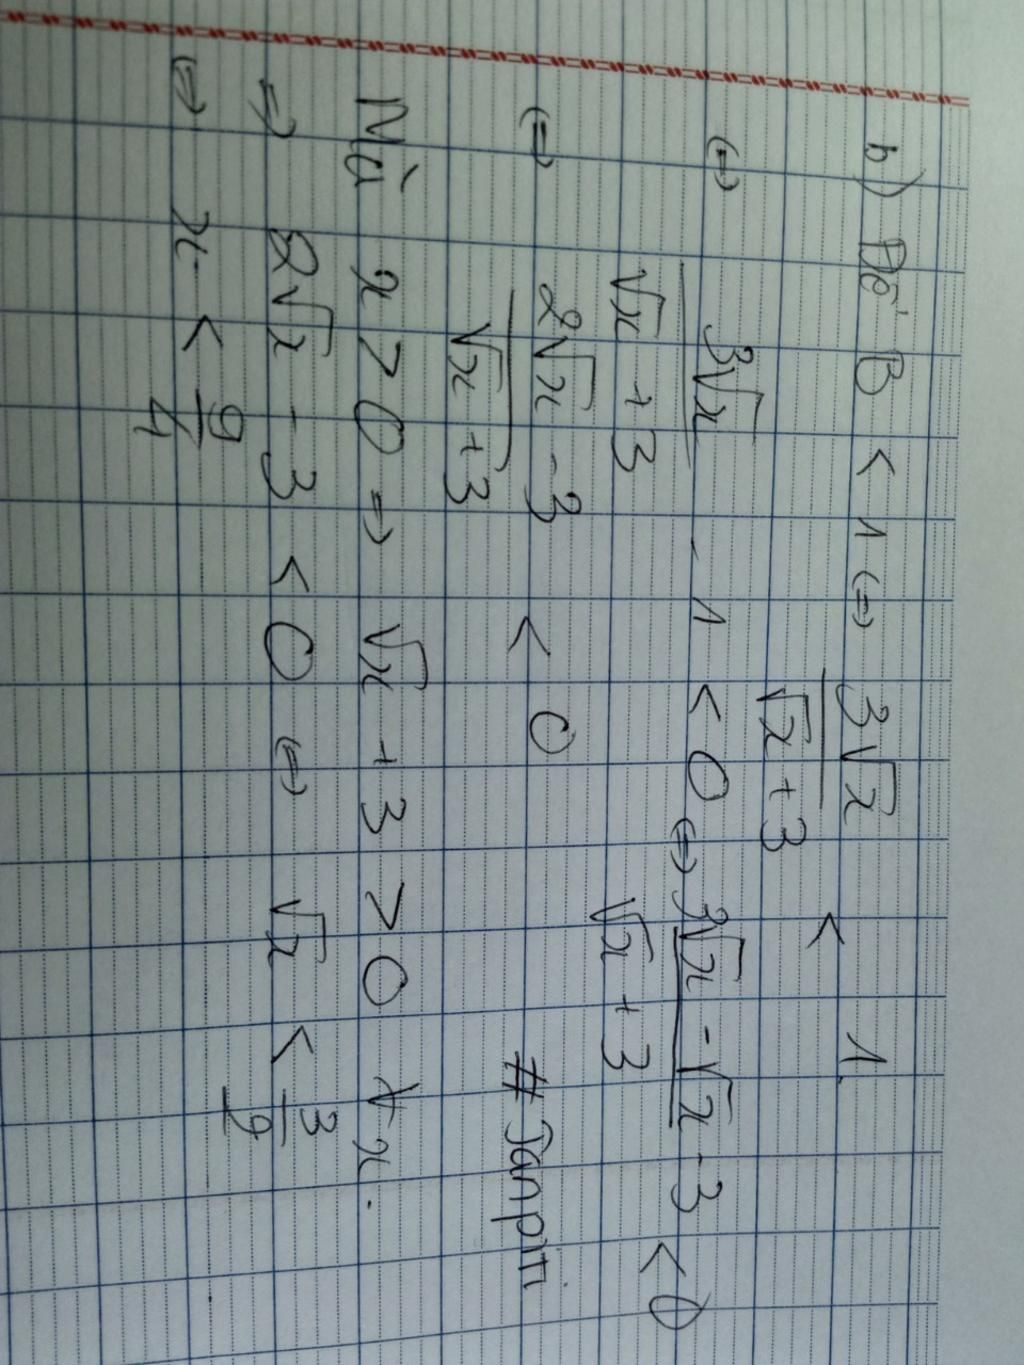 b) Để B < 1 ⇔ 3√x / (√x + 3) < 1.
⇔ 3√x / (√x + 3) - 1 < 0 ⇔ (3√x - √x - 3) / (√x + 3) < 0
⇔ (2√x - 3) / (√x + 3) < 0
Mà x > 0 ⇒ √x + 3 > 0 ∀x.
⇒ 2√x - 3 < 0 ⇔ √x < 3/2
⇔ x < 9/4